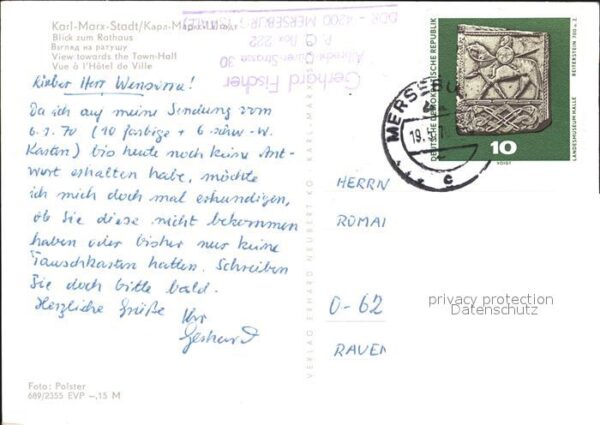 Karl-Marx-Stadt/Карл-Маркс-Штадт
Blick zum Rathaus
Взгляд на ратушу
View towards the Town-Hall
Vue à l'Hôtel de Ville
Lieber Herr
Da ich auf meine Sendung vom
6.1.70 (10 farbige + 6 schw.-W.
Karten) bis heute noch keine Ant-
wort erhalten habe, möchte
ich mich doch mal erkundigen,
ob Sie diese nicht bekommen
haben oder bisher nur keine
Tauschkarten hatten. Schreiben
Sie doch bitte bald.
Herzliche Grüße Ihr
Gerhard
Foto: Polster
689/2355 EVP -,15 M
VERLAG ERHARD NEUBERT KG · KARL-MARX
Gerhard Fischer
Albrecht-Dürer-Strasse 30
P. O. Box 222
DDR - 4200 MERSEBURG
MERSEBU
19.
c
DEUTSCHE DEMOKRATISCHE REPUBLIK
REITERSTEIN 700 u. Z.
LANDESMUSEUM HALLE
10
VOIGT
HERRN
ROMAI
O-62
RAVEN
privacy protection
Datenschutz